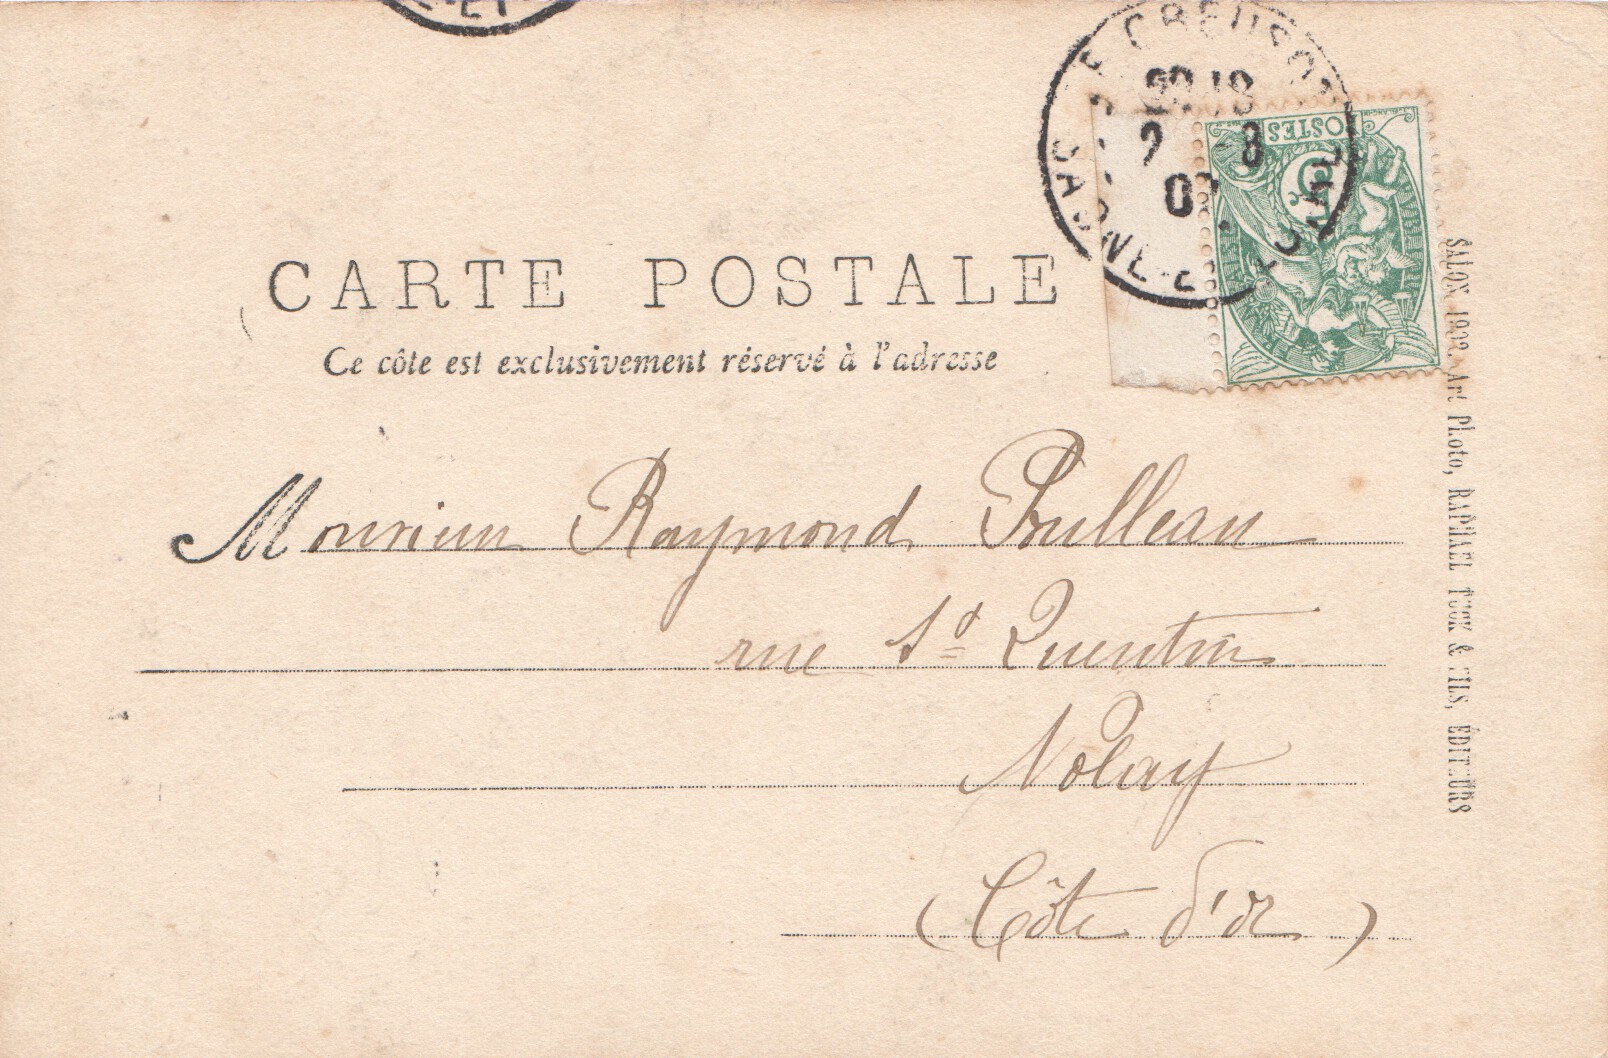 CREUSOT
SAONE-ET-LOIRE
2 8
POSTES
5c
CARTE POSTALE
Ce côte est exclusivement réservé à l'adresse
Monsieur Raymond
rue St Quentin
Nolay
(Côte d'or)
SALON 1902. Art Photo, RAPHAEL TUCK & FILS, ÉDITEURS